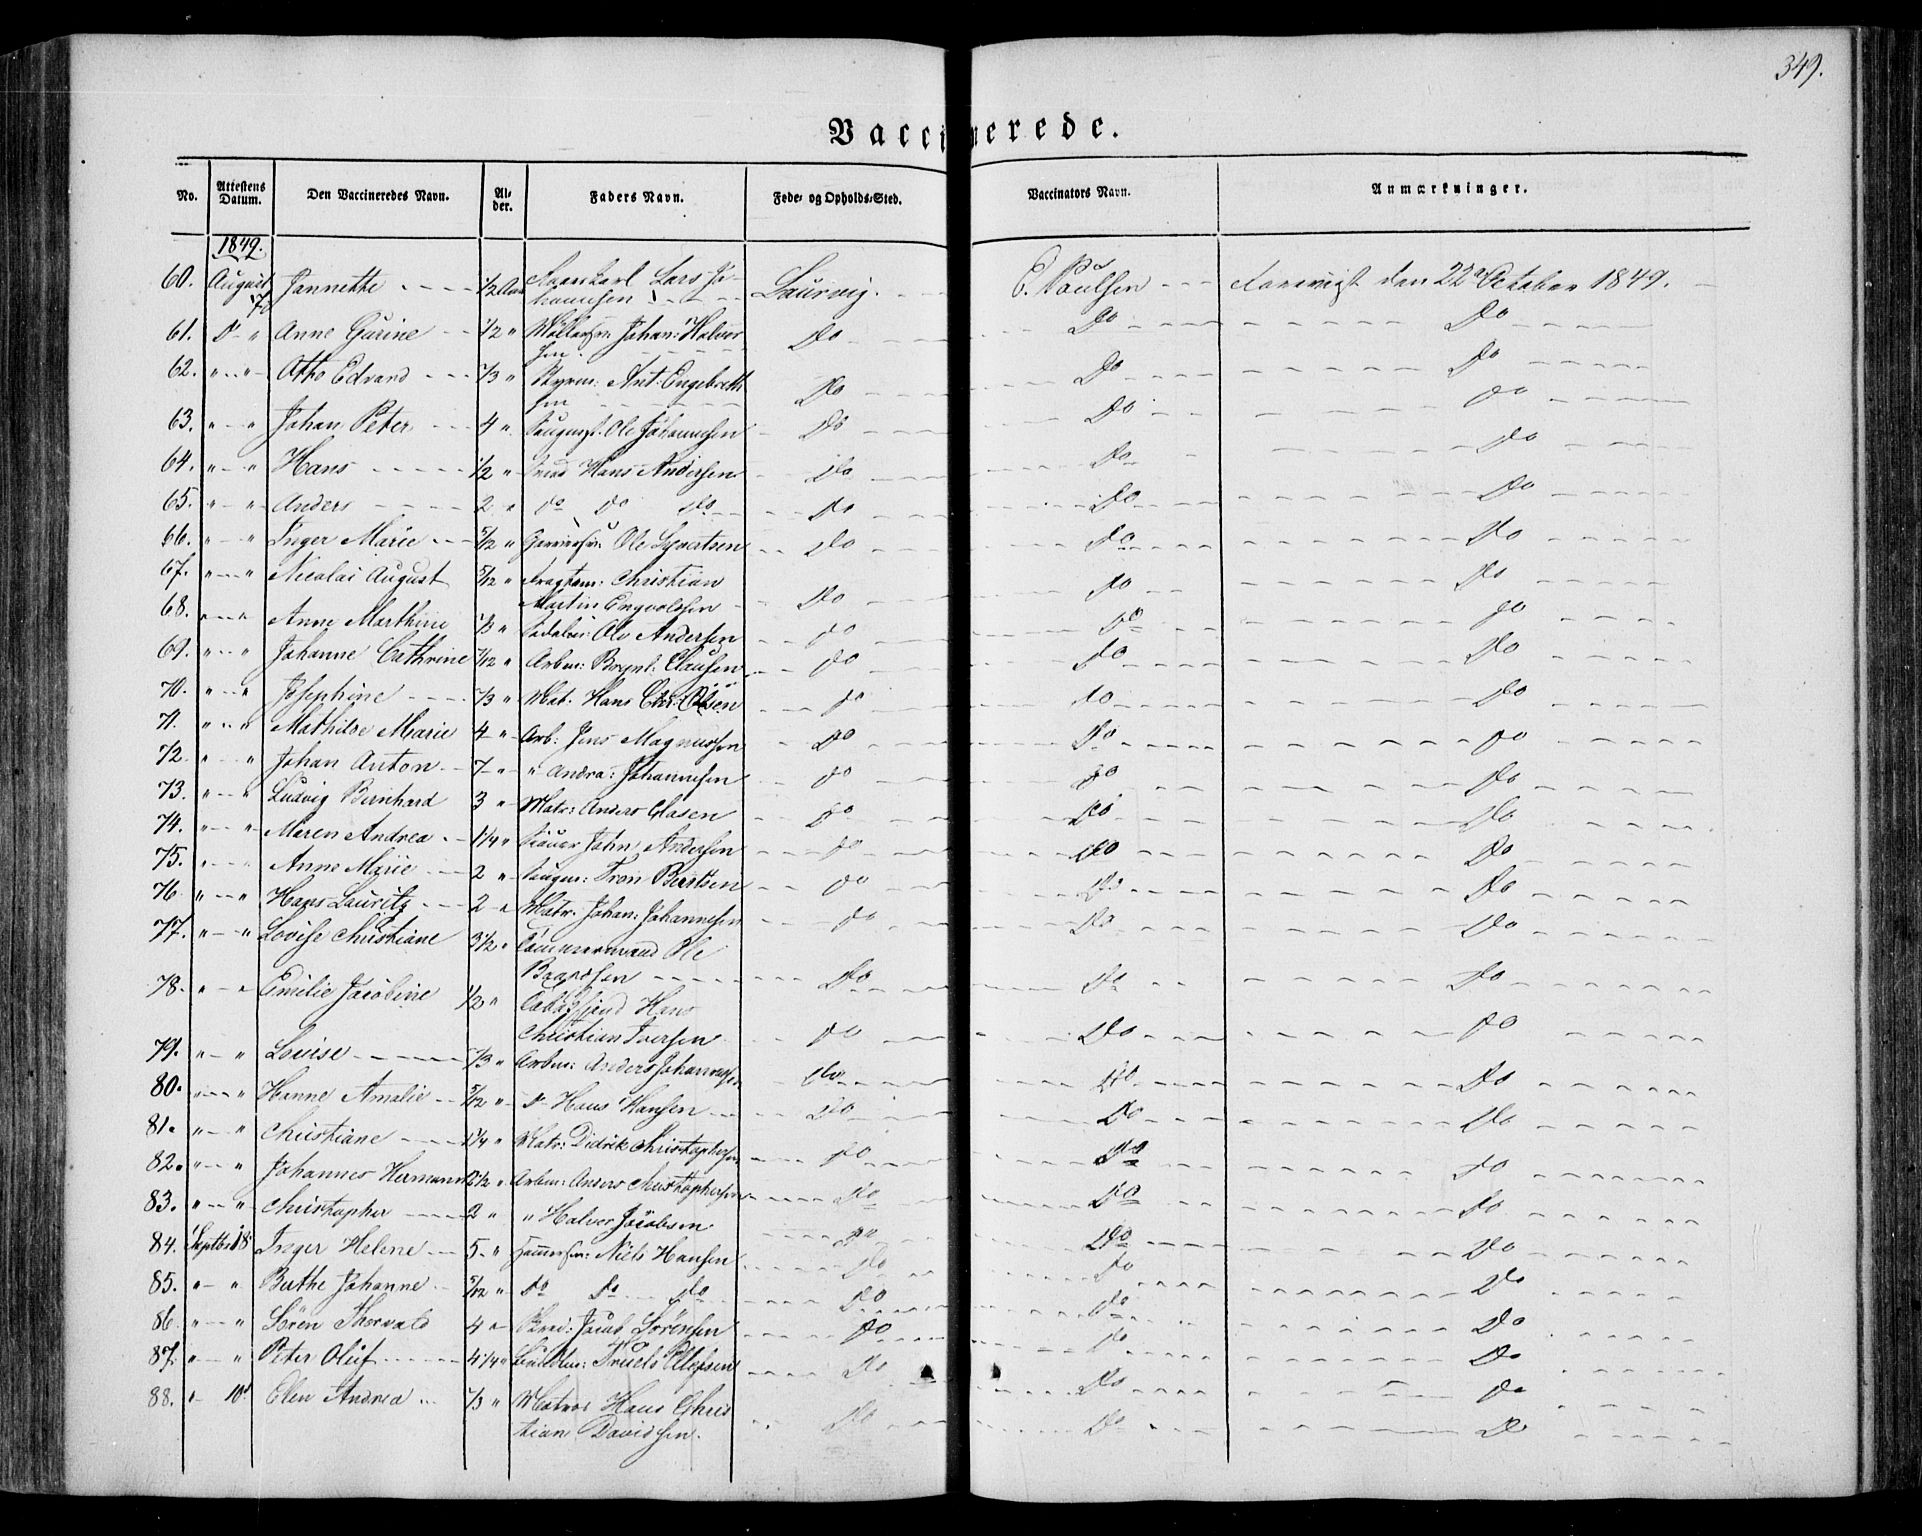 349.
Vaccinerede.
No. Attestens Datum. Den Vaccineredes Navn. Al-der. Faders Navn. Føde- og Opholds-Sted. Vaccinators Navn. Anmærkninger.
1849.
60. August 7d Jannethe 1/2 Aar Lars Jo- Laurvig. C. Paulsen den 22de October 1849.
hannesen
61. D " Anne Gurine 1/2 " Johan: Halvor Do Do Do
sen
62. " " Otho Edvard 1/3 " Styrm: Ant: Engebreth Do Do Do
sen
63. " " Johan Peter 4 " Ole Johannesen Do Do Do
64. " " Hans 1/2 " Hans Andersen Do Do Do
65. " " Anders 2 " do do do Do Do Do
66. " " Inger Marie 5/12 " Ole Syvertsen Do Do Do
67. " " Nicolai August 5/12 " Fragtem: Christian
Martin Engvoldsen Do Do Do
68. " " Anne Marthine 1/3 " Ole Andersen Do Do Do
69. " " Johanne Cathrine 7/12 " Arbm: Brynl: Clausen Do Do Do
70. " " Josephine 1/3 " Mat: Hans Chr: Olsen Do Do Do
71. " " Mathilde Marie 4 " Arb: Jens Magnussen Do Do Do
72. " " Johan Anton 7 " " Andra: Johannesen Do Do Do
73. " " Ludvig Bernhard 3 " Matr: Anders Olasen Do Do Do
74. " " Maren Andrea 1 1/4 " John Andersen Do Do Do
75. " " Anne Marie 2 " Tron Berttsen Do Do Do
76. " " Hans Lauritz 2 " Matr: Johan: Johannesen Do Do Do
77. " " Lovise Christiane 3 1/2 " Tömmermand Ole
Baardsen Do Do Do
78. " " Emilie Jacobine 1/2 " Hans
Christian Iversen Do Do Do
79. " " Lovise 1/3 " Arbm: Anders Johannesen Do Do Do
80. " " Hanne Amalie 5/12 " D Hans Hansen Do Do Do
81. " " Christiane 1 1/4 " Matr: Didrik Christophersen Do Do Do
82. " " Johannes Hermann 2 1/2 " Arbm: Anders Christophersen Do Do Do
83. " " Christopher 2 " " Halvor Jacobsen Do Do Do
84. Septbr 18 Inger Helene 5 " Niels Hansen Do Do Do
85. " " Berthe Johanne 5/12 " Do Do Do Do Do Do
86. " " Sören Thorvald 4 " Jacob Sörensen Do Do Do
87. " " Peter Oluf 4 1/4 " Truels Ellefsen Do Do Do
88. " 10d Elen Andrea 1/3 " Matros Hans Chris
tian Davidsen. Do Do Do